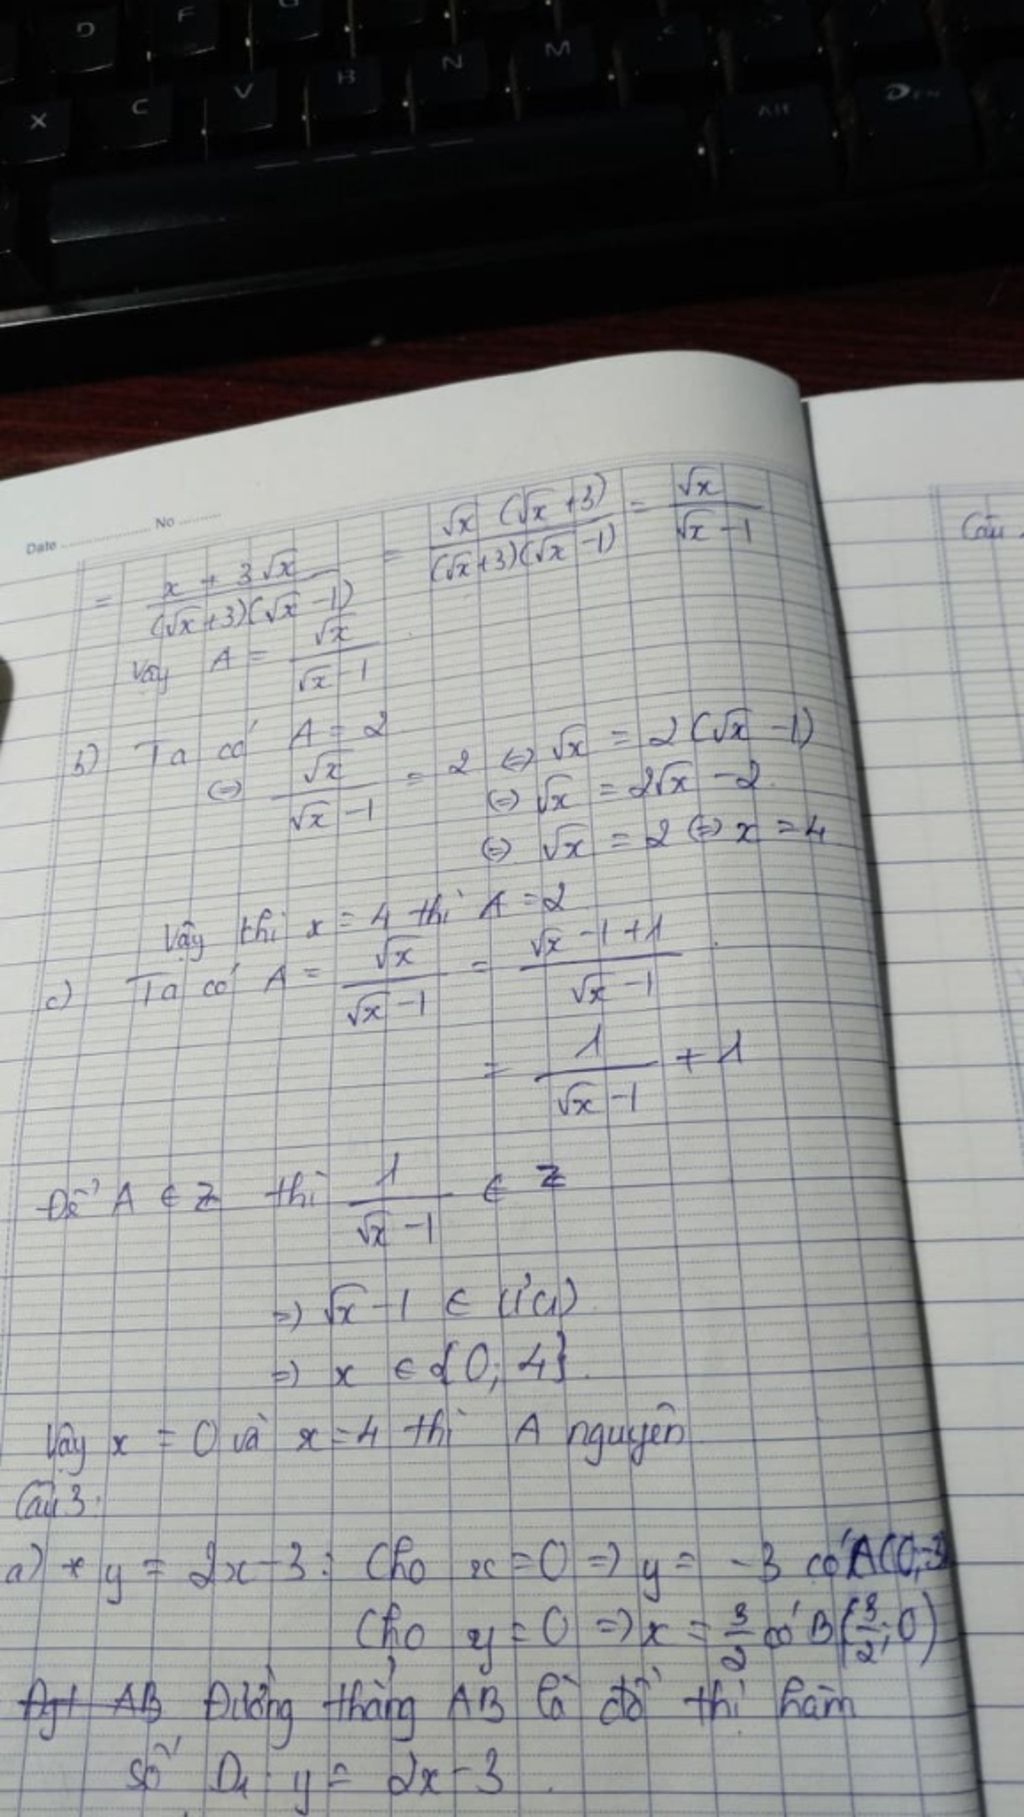 D F G
X C V B N M <
Alt
Date ............ No ..........
= x + 3√x / (√x+3)(√x-1) = √x (√x+3) / (√x+3)(√x-1) = √x / √x-1
Câu
Vậy A = √x / √x-1
b) Ta có A = 2
(=) √x / √x-1 = 2 (=) √x = 2(√x-1)
(=) √x = 2√x - 2.
(=) √x = 2 (=) x = 4
Vậy thì x = 4 thì A = 2
c) Ta có A = √x / √x-1 = √x-1+1 / √x-1
= 1 / √x-1 + 1
Để A ∈ Z thì 1 / √x-1 ∈ Z
=) √x-1 ∈ Ư(1)
=) x ∈ {0; 4}.
Vậy x = 0 và x = 4 thì A nguyên
Câu 3:
a) * y = 2x-3: Cho x = 0 => y = -3 có A(0;-3)
Cho y = 0 => x = 3/2 có B(3/2; 0)
AB Đường thẳng AB là đồ thị hàm
số D₁ y = 2x-3.